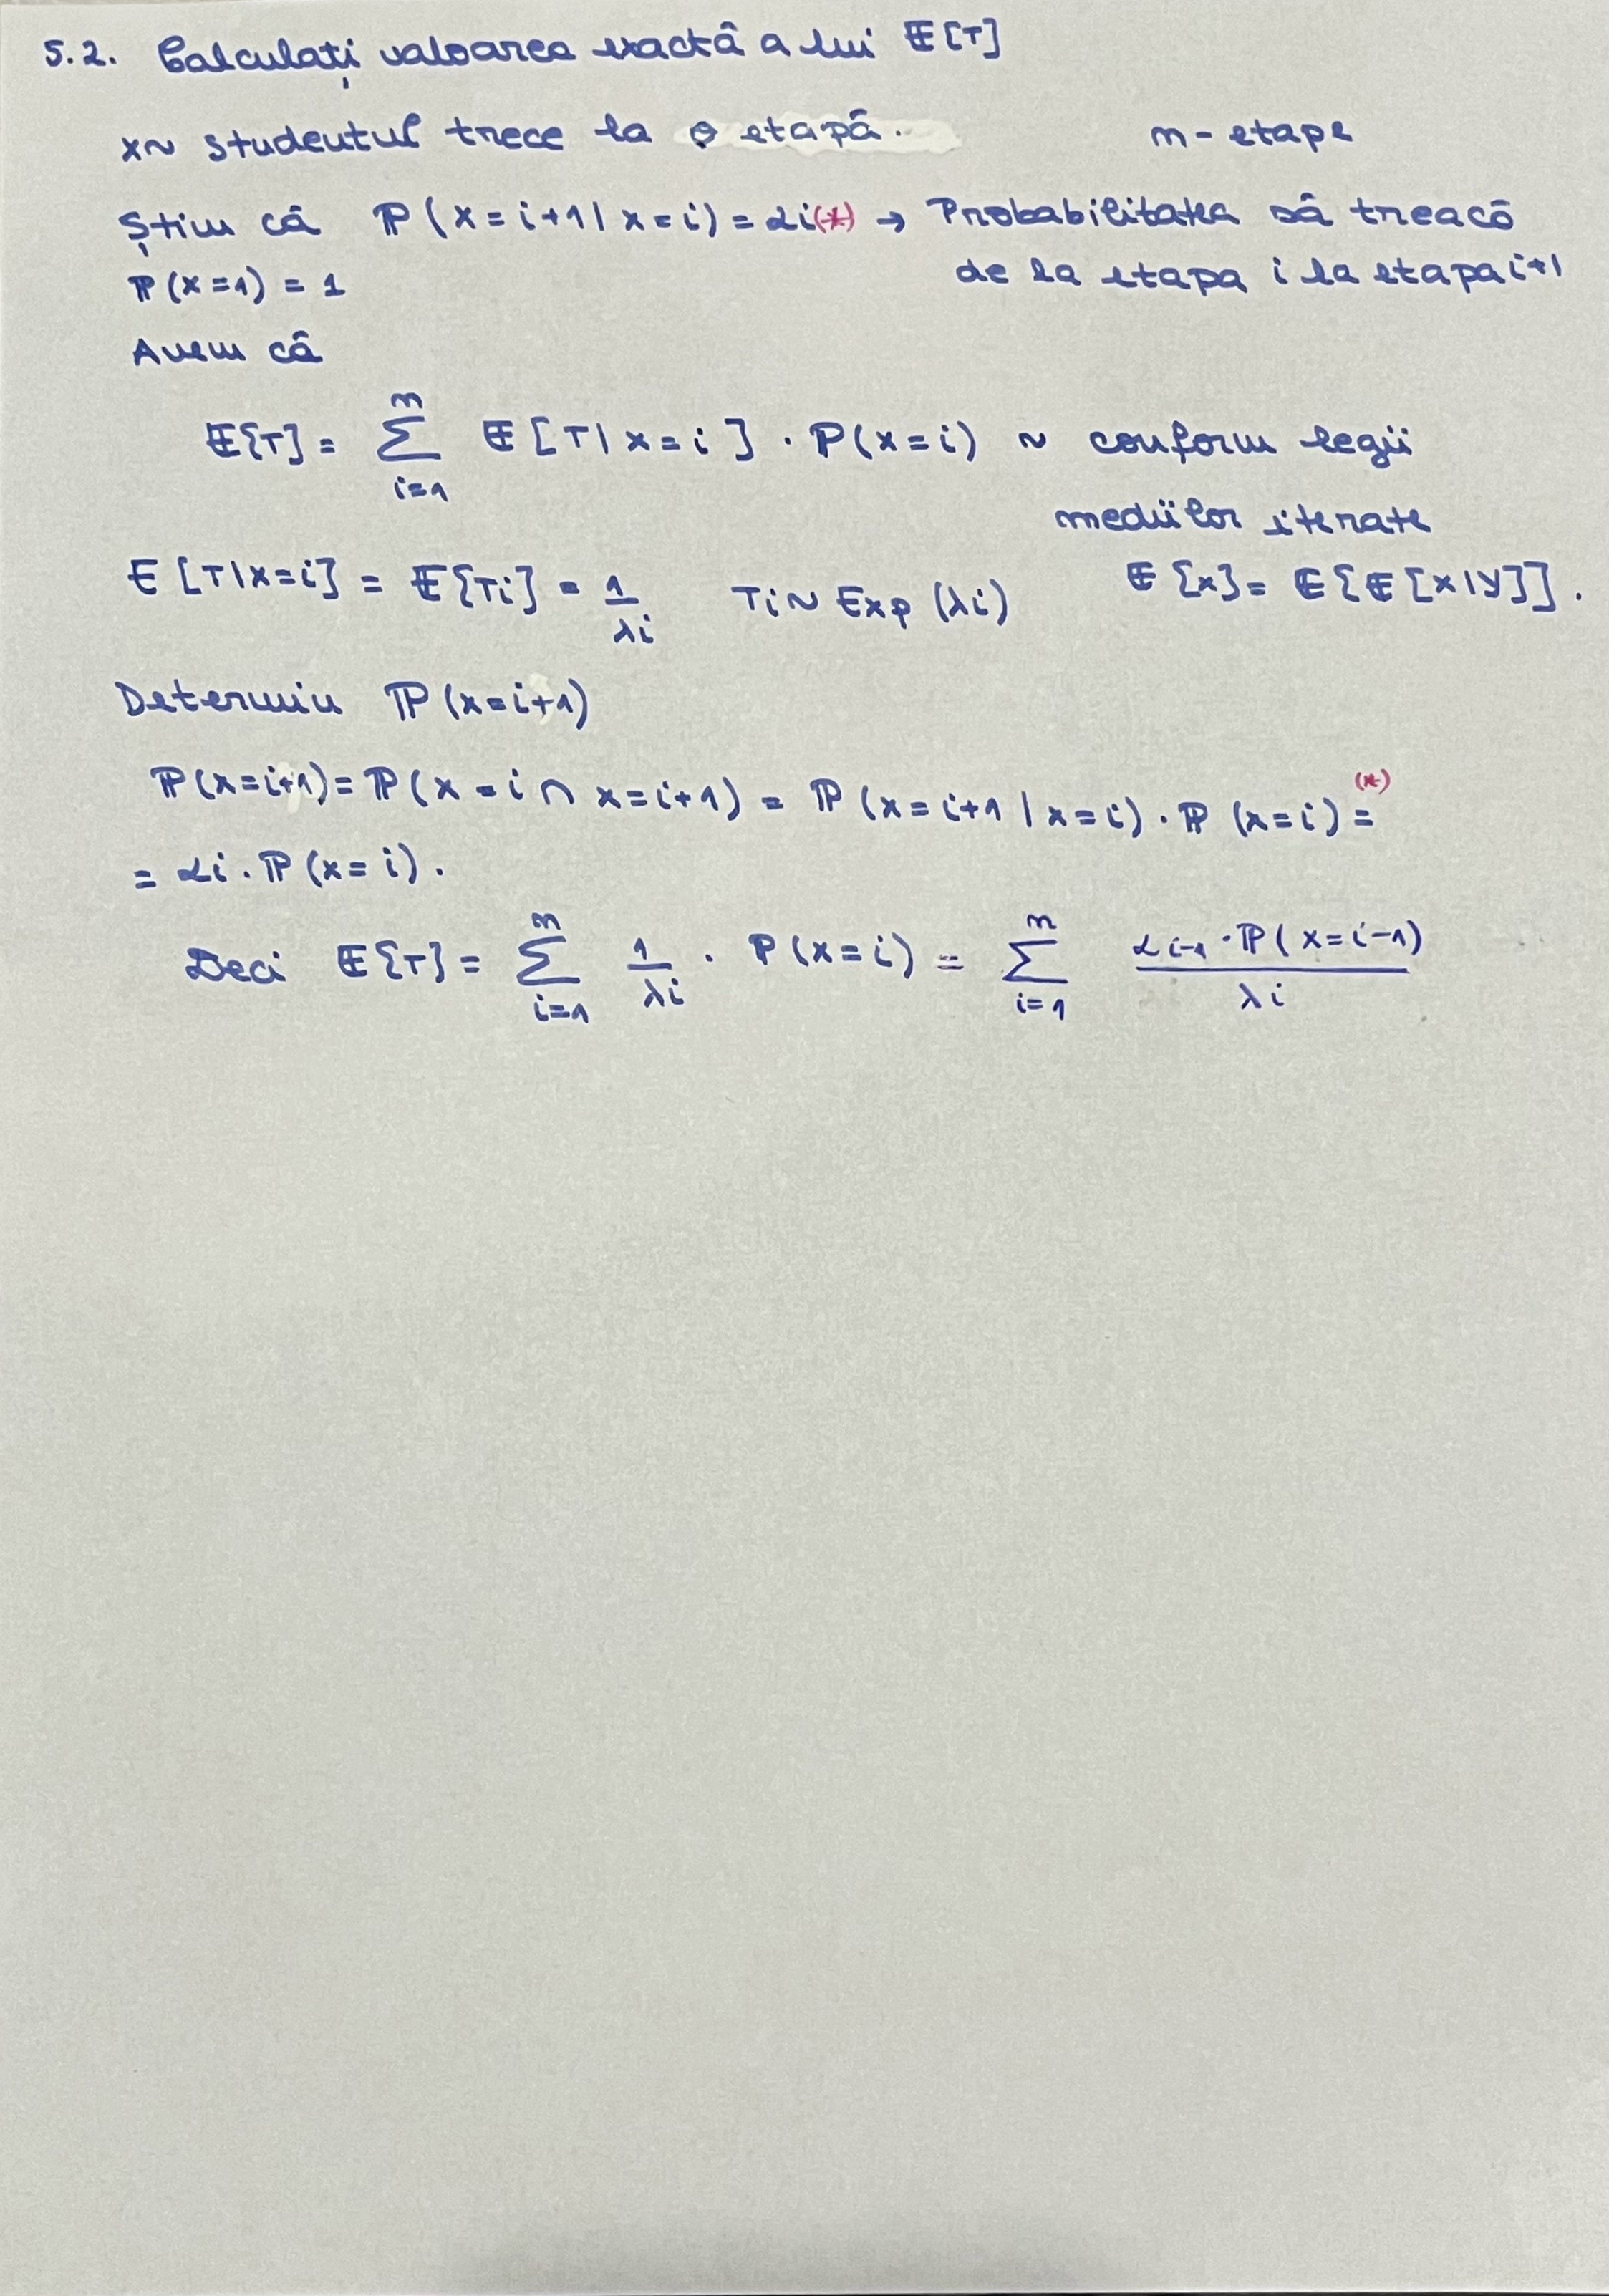 5.2. Calculați valoarea exactă a lui 𝔼[T]
x~ studentul trece la o etapă. n - etape
Știm că ℙ(x=i+1 | x=i) = αi(*) → Probabilitatea să treacă
ℙ(x=1) = 1 de la etapa i la etapa i+1
Avem că
𝔼[T] = ∑_{i=1}^{n} 𝔼[T | x=i] · ℙ(x=i) ~ conform legii
mediilor iterate
𝔼[T|x=i] = 𝔼[Ti] = 1/λi Ti ~ Exp(λi) 𝔼[x] = 𝔼[𝔼[x|y]].
Determin ℙ(x=i+1)
ℙ(x=i+1) = ℙ(x=i ∩ x=i+1) = ℙ(x=i+1 | x=i) · ℙ(x=i) =(*)
= αi · ℙ(x=i).
Deci 𝔼[T] = ∑_{i=1}^{n} 1/λi · ℙ(x=i) = ∑_{i=1}^{n} (αi-1 · ℙ(x=i-1))/λi